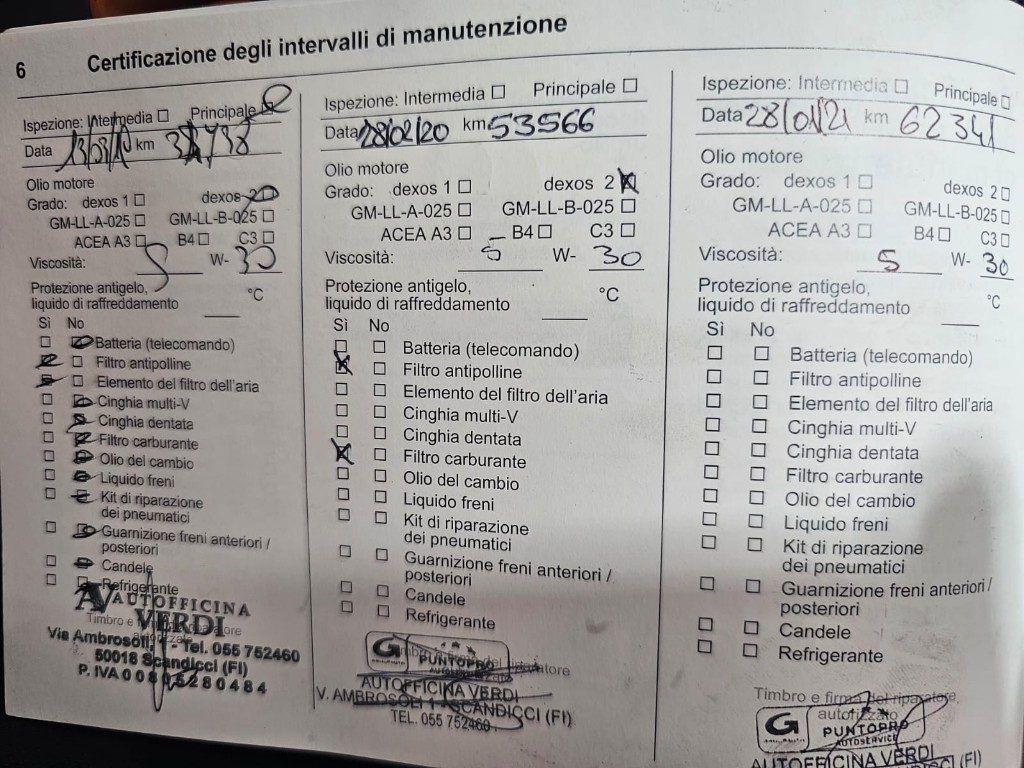 6
Certificazione degli intervalli di manutenzione
Ispezione: Intermedia ☐ Principale ☐
Data km
Olio motore
Grado: dexos 1 ☐ dexos 2 ☐
GM-LL-A-025 ☐ GM-LL-B-025 ☐
ACEA A3 ☐ B4 ☐ C3 ☐
Viscosità: 5 W- 30
Protezione antigelo,
liquido di raffreddamento °C
Sì No
Batteria (telecomando)
Filtro antipolline
Elemento del filtro dell'aria
Cinghia multi-V
Cinghia dentata
Filtro carburante
Olio del cambio
Liquido freni
Kit di riparazione
dei pneumatici
Guarnizione freni anteriori /
posteriori
Candele
Refrigerante
AV AUTOFFICINA
VERDI
Timbro e
Via Ambrosoli, - Tel. 055 752460
50018 Scandicci (FI)
P. IVA
Ispezione: Intermedia ☐ Principale ☐
Data 28/02/20 km 53566
Olio motore
Grado: dexos 1 ☐ dexos 2 ☒
GM-LL-A-025 ☐ GM-LL-B-025 ☐
ACEA A3 ☐ B4 ☐ C3 ☐
Viscosità: 5 W- 30
Protezione antigelo,
liquido di raffreddamento °C
Sì No
Batteria (telecomando)
Filtro antipolline
Elemento del filtro dell'aria
Cinghia multi-V
Cinghia dentata
Filtro carburante
Olio del cambio
Liquido freni
Kit di riparazione
dei pneumatici
Guarnizione freni anteriori /
posteriori
Candele
Refrigerante
G PUNTOPRO
AUTOFFICINA VERDI
V. AMBROSOLI 1 - SCANDICCI (FI)
TEL. 055 752460
Ispezione: Intermedia ☐ Principale ☐
Data 28/01/21 km 62341
Olio motore
Grado: dexos 1 ☐ dexos 2 ☐
GM-LL-A-025 ☐ GM-LL-B-025 ☐
ACEA A3 ☐ B4 ☐ C3 ☐
Viscosità: 5 W- 30
Protezione antigelo,
liquido di raffreddamento °C
Sì No
Batteria (telecomando)
Filtro antipolline
Elemento del filtro dell'aria
Cinghia multi-V
Cinghia dentata
Filtro carburante
Olio del cambio
Liquido freni
Kit di riparazione
dei pneumatici
Guarnizione freni anteriori /
posteriori
Candele
Refrigerante
Timbro e firma del riparatore
autorizzato
G PUNTOPRO
AUTOSERVICE
AUTOFFICINA VERDI
(FI)